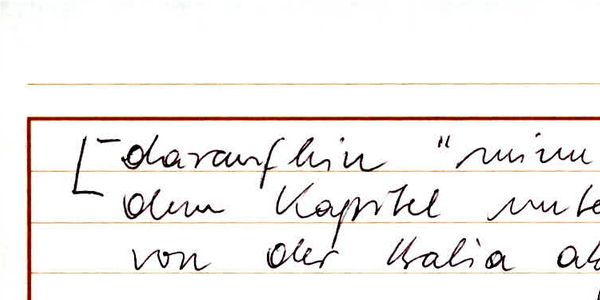 [-daraufhin "nimm
dem Kapitel unte
von der Balia ab